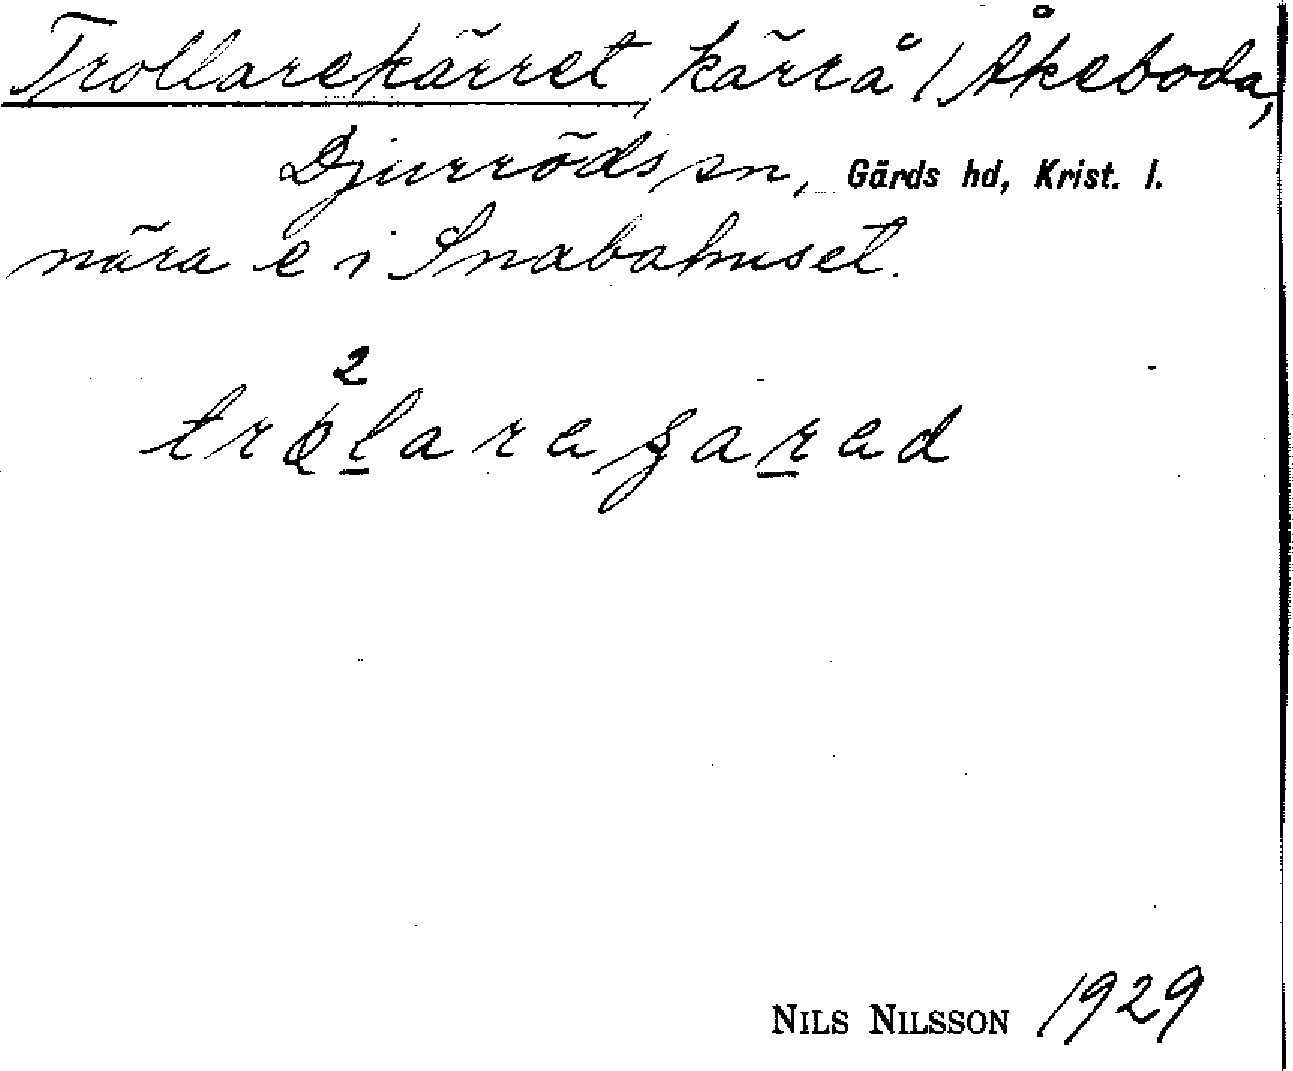 Trollarekärret, kärr å / Åkeboda,
Djurröds sn, Gärds hd, Krist. l.
nära e i Snabahuset.
2
NILS NILSSON 1929